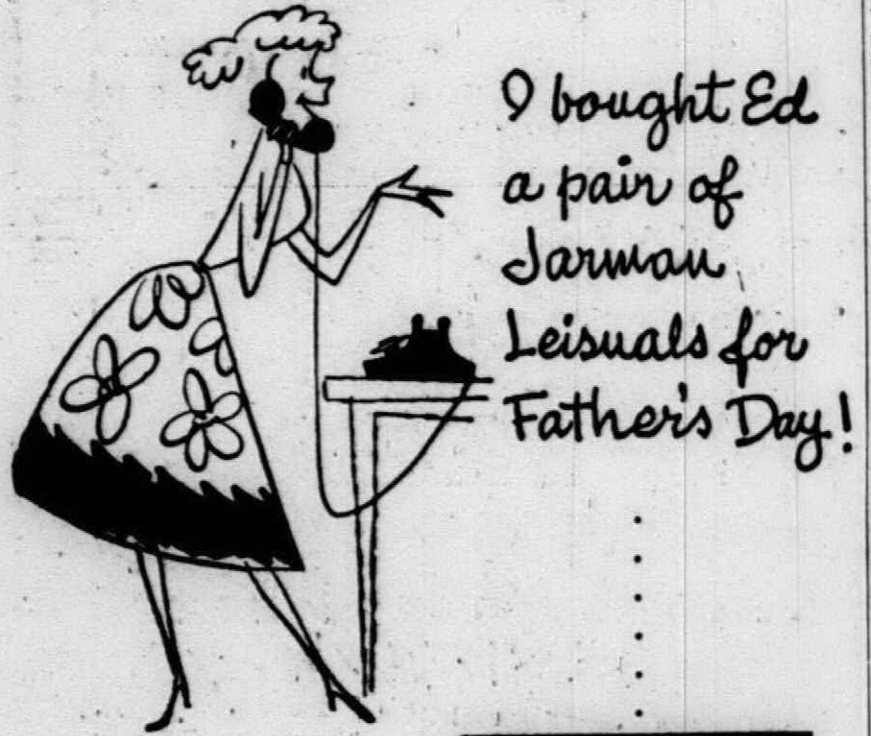 I bought Ed
a pair of
Jarman
Leisuals for
Father's Day!